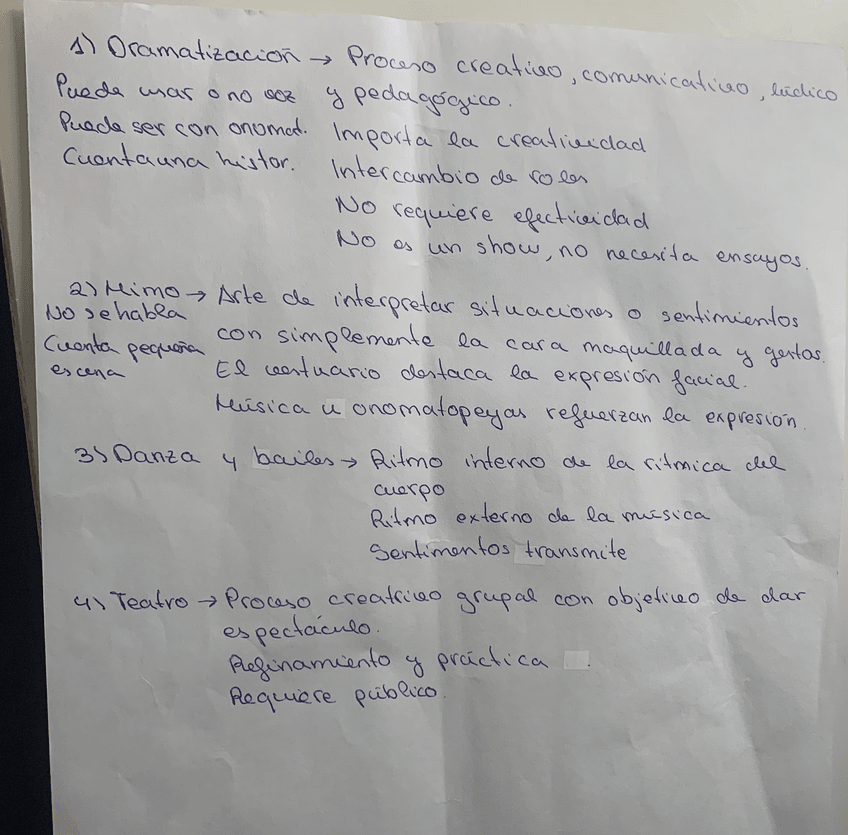 1) Dramatización → Proceso creativo, comunicativo, lúdico
Puede usar o no voz y pedagógico.
Puede ser con onomat. Importa la creatividad
Cuenta una histor. Intercambio de roles
No requiere efectividad
No es un show, no necesita ensayos.
2) Mimo → Arte de interpretar situaciones o sentimientos
No se habla
con simplemente la cara maquillada y gestos.
Cuenta pequeña
escena El vestuario destaca la expresión facial.
Música u onomatopeyas refuerzan la expresión.
3) Danza y bailes → Ritmo interno de la rítmica del
cuerpo
Ritmo externo de la música
Sentimentos transmite
4) Teatro → Proceso creativo grupal con objetivo de dar
espectáculo.
Refinamiento y práctica .
Requiere público.